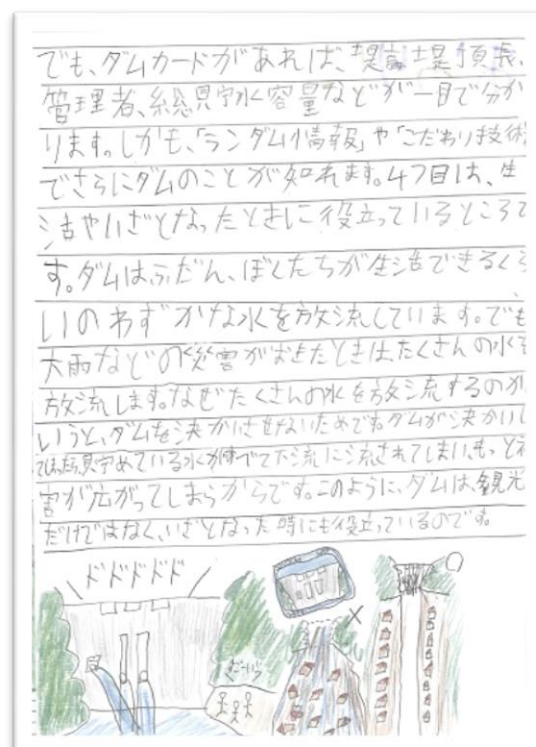 でも、ダムカードがあれば、堤高堤頂長、
管理者、総貯水容量などが一目で分か
ります。しかも、「ランダム情報」や「こだわり技術
でさらにダムのことが知れます。4つ目は、生
活やいざとなったときに役立っているところで
す。ダムはふだん、ぼくたちが生活できるくら
いのわずかな水を放流しています。でも
大雨などの災害がおきたときは、たくさんの水を
放流します。なぜたくさんの水を放流するのか
いうと、ダムを決かいさせないためです。ダムが決かいし
てしまったら貯めている水がすべて下流に流されてしまい、もっと
害が広がってしまうからです。このように、ダムは、観光
だけではなく、いざとなった時にも役立っているのです。
ドドドドド